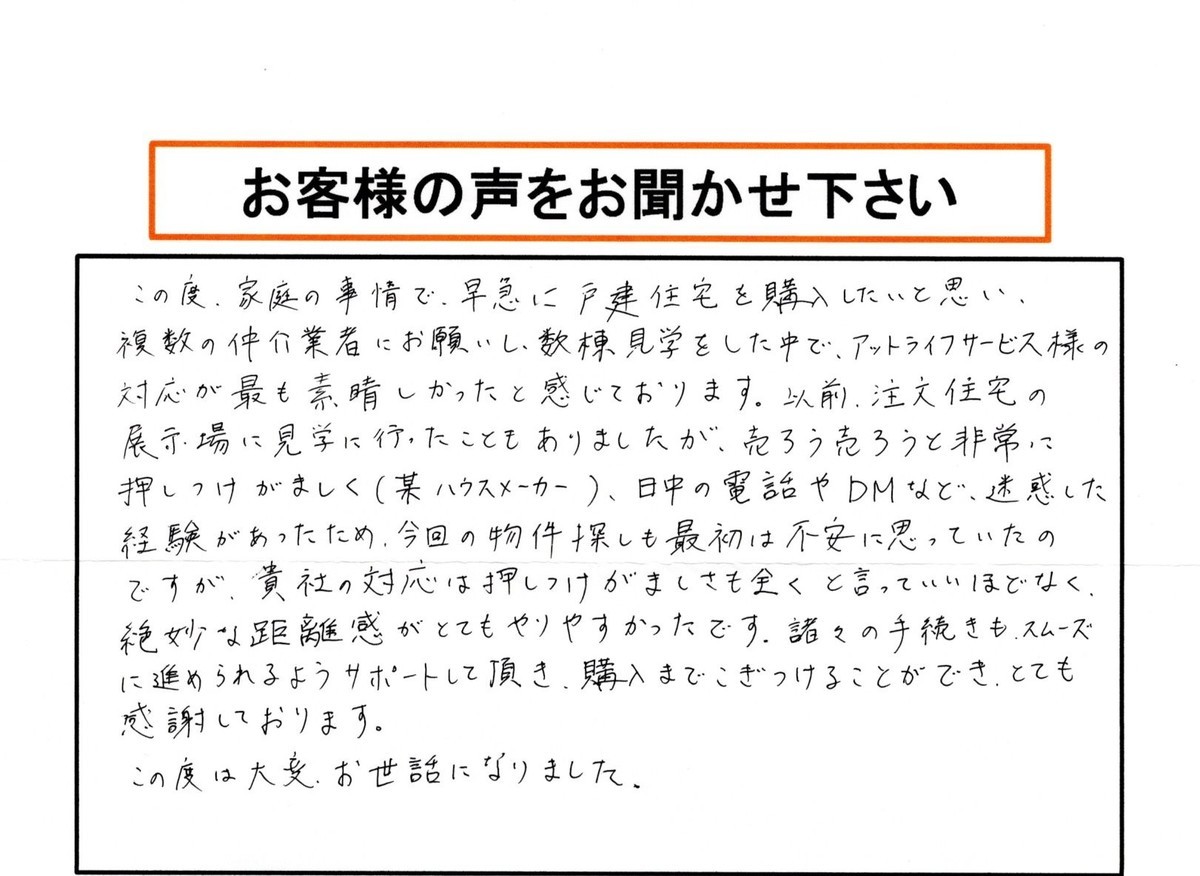 お客様の声をお聞かせ下さい
この度、家庭の事情で、早急に戸建住宅を購入したいと思い、
複数の仲介業者にお願いし、数棟見学をした中で、アットライフサービス様の
対応が最も素晴しかったと感じております。以前、注文住宅の
展示場に見学に行ったこともありましたが、売ろう売ろうと非常に
押しつけがましく(某ハウスメーカー)、日中の電話やDMなど、迷惑した
経験があったため、今回の物件探しも最初は不安に思っていたの
ですが、貴社の対応は押しつけがましさも全くと言っていいほどなく、
絶妙な距離感がとてもやりやすかったです。諸々の手続きも、スムーズ
に進められるようサポートして頂き、購入までこぎつけることができ、とても
感謝しております。
この度は大変、お世話になりました。